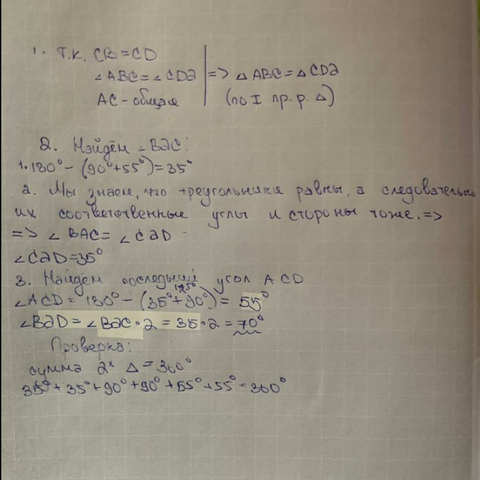 1. Т.к. CB=CD
∠ABC=∠CDA => △ABC=△CDA
AC-общая (по I пр.р.△)
2. Найдём ∠BAC:
1. 180°-(90°+55°)=35°
2. Мы знаем, что треугольники равны, а следовательно
их соответственные углы и стороны тоже. =>
=> ∠BAC=∠CAD
∠CAD=35°
3. Найдём последний угол ACD
125°
∠ACD=180°-(35°+90°)=55°
∠BAD=∠BAC·2=35·2=70°
Проверка:
сумма 2х △=360°
35°+35°+90°+90°+55°+55°=360°